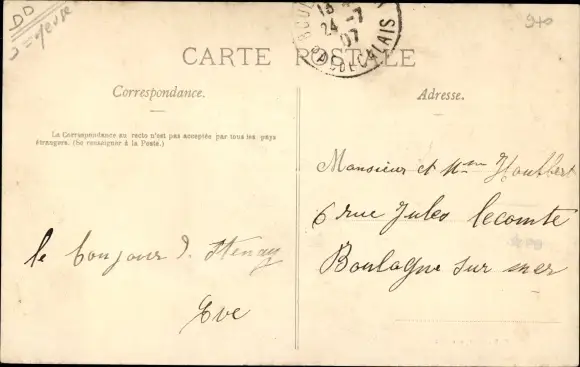 DD
Meuse
BOUL
24 - 7
07
PAS DE CALAIS
CARTE POSTALE
Correspondance.
La Correspondance au recto n'est pas acceptée par tous les pays
étrangers. (Se renseigner à la Poste.)
le bonjour d. Stenay
Eve
Adresse.
Monsieur et Mme
6 rue Jules Lecomte
Boulogne sur mer